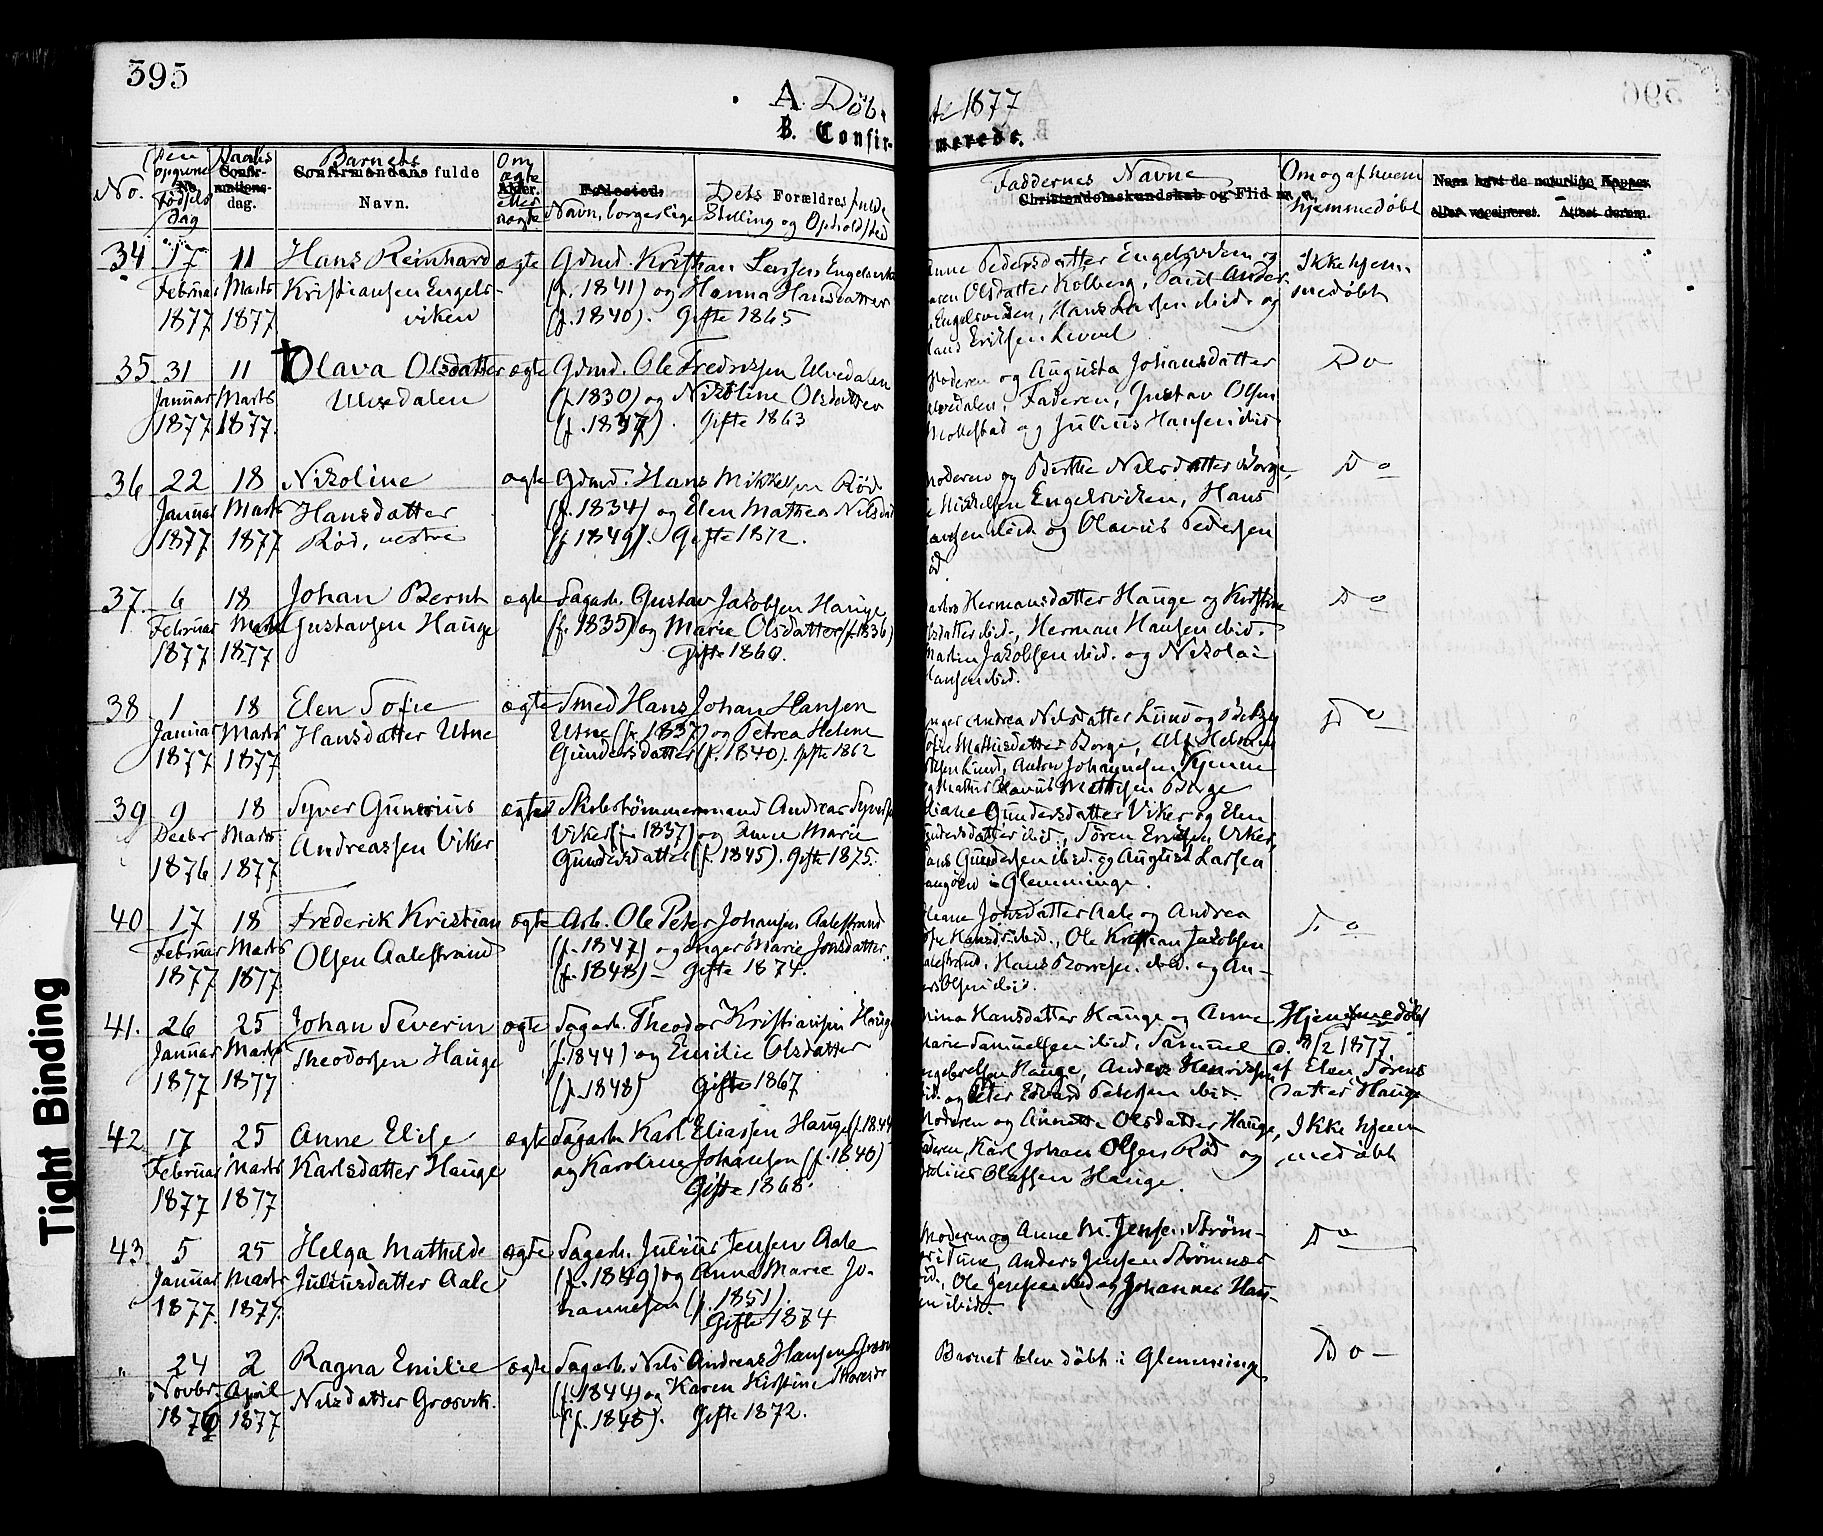 395
A. Døb-
te 1877
B. Confir-
merede.
No.
Den opgivne Fødsels Dag
Daabs
Confirmationsdag.
Barnets
Confirmandens fulde
Navn.
Om ægte eller uægte
Alder.
Fødested.
Dets Forældres fulde
Navn, borgerlige Stilling og Opholdssted
Faddernes Navne
Christendomskundskab og Flid m. m.
Om og af hvem
hjemmedøbt
Naar havt de naturlige Kopper
eller vaccineret. Attest derom.
34 17 11 Hans Reinhard ægte Gdmd. Kristian Larsen Engelsviken
Februar Marts Kristiansen Engels- (f. 1841) og Hanna Hansdatter
1877 1877 viken (f. 1840). Gifte 1865
Anne Pedersdatter Engelsviken og
Olsdatter Kolberg, Paul Ander-
Engelsviken, Hans Larsen ibid. og
Eriksen Lervel
Ikke hjem-
medøbt
35 31 11 † Olava Olsdatter ægte Gdmd. Ole Fredrissen Ulvedalen
Januar Marts Ulvedalen (f. 1830) og Nikoline Olsdatter
1877 1877. (f. 1837). Gifte 1863
Moderen og Augusta Johansdatter
Ulvedalen, Faderen, Gustav Olsen
og Julius Hansen ibid.
Do
36 22 18 Nikoline ægte Gdmd. Hans Mikkelsen Rød
Januar Marts Hansdatter (f. 1834) og Elen Mathea Nilsdat
1877 1877 Rød, vestre (f. 1849). Gifte 1872.
Moderen og Berthe Nilsdatter Borge,
Mikkelsen Engelsviken, Hans
ibid. og Olavus Pedersen
Rød
Do
37. 6 18 Johan Bernt ægte Sagarb. Gustav Jakobsen Hauge
Februar Marts Gustavsen Hauge (f. 1835) og Marie Olsdatter (f. 1836)
1877 1877 Gifte 1860.
Hermansdatter Hauge og Kristine
ibid., Herman Hansen ibid.
Martin Jakobsen ibid. og Nikolai
Hansen ibid.
Do
38 1 18 Elen Sofie ægte Smed Hans Johan Hansen
Januar Marts Hansdatter Utne Utne (f. 1837) og Petrea Helene
1877 1877 Gundersdatter (f. 1840). Gifte 1862
Inger Andrea Nilsdatter Lund og
Sofie Mathisdatter Borge,
Lund, Anton Johannesen
Olavus Mathisen Borge
Do
39 9 18 Syver Gunerius ægte Skibstømmermand Andreas Syversen
Decbr Marts Andreassen Viker Viker (f. 1837) og Anne Marie
1876 1877 Gundersdatter (f. 1845). Gifte 1875.
Gundersdatter Viker og Elen
Gundersdatter ibid., Søren Eriksen Viker,
Hans Gundersen ibid. og August Larsen
i Glemminge.
40 17 18 Frederik Kristian ægte Arb. Ole Peter Johansen Aalestrand
Februar Marts Olsen Aalestrand (f. 1847) og Inger Marie Jonsdatter
1877 1877. (f. 1848) – Gifte 1874.
Aale og Andrea
ibid., Ole Kristian Jakobsen
Aalestrand, Hans ibid. og An-
Olsen ibid.
Do
41. 26 25 Johan Severin ægte Sagarb. Theodor Kristiansen Hauge
Januar Marts Theodorsen Hauge (f. 1844) og Emilie Olsdatter
1877 1877 (f. 1848) Gifte 1867
Hansdatter Hauge og Anne
Marie Samuelsen ibid., Samuel
Hauge, Anders Henriksen
ibid. og Peter Edvard Petersen ibid.
Hjemmedøbt
1877
af Elen Sørens-
datter Hauge
42 17 25 Anne Elise ægte Sagarb. Karl Eliassen Hauge (f. 1844
Februar Marts Karlsdatter Hauge og Karoline Johansen (f. 1840)
1877 1877 Gifte 1868.
Moderen og Annette Olsdatter Hauge,
Faderen, Karl Johan Olsen Rød og
Olafsen Hauge.
Ikke hjem-
medøbt
43. 5 25 Helga Mathilde ægte Sagarb. Julius Jensen Aale
Januar Marts Juliusdatter Aale (f. 1849) og Anne Marie Jo-
1877. 1877. hannesen (f. 1851).
Gifte 1874
Moderen og Anne M. Jensen Strøm-
i Tune, Anders Jensen Strømnæs
ibid., Ole Jensen ibid og Johannes Han-
sen ibid.
Do
" 24 2 Ragna Emilie ægte Sagarb. Nils Andreas Hansen
Novbr. April Nilsdatter Græsvik. (f. 1844) og Karen Kirstine
1876 1877 (f. 1848). Gifte 1872.
Barnet blev døbt i Glemminge
Do
Tight Binding